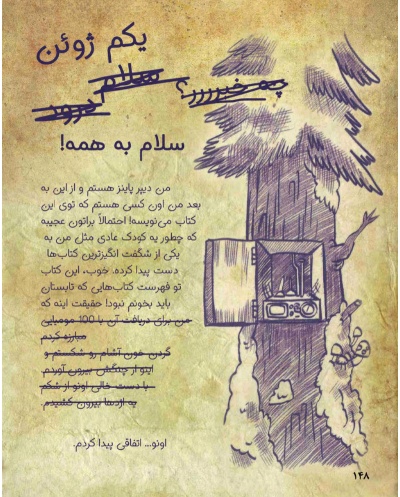 یکم ژوئن
سلام
چه خبررررر؟
درود
سلام به همه!
من دیپر پاینز هستم و از این به
بعد من اون کسی هستم که توی این
کتاب می‌نویسه! احتمالاً براتون عجیبه
که چطور یه کودک عادی مثل من به
یکی از شگفت انگیزترین کتاب‌ها
دست پیدا کرده. خوب، این کتاب
تو فهرست کتاب‌هایی که تابستان
باید بخونم نبود! حقیقت اینه که
من برای دریافت آن با 100 مومیایی
مبارزه کردم
گردن خون آشام رو شکستم و
اینو از چنگش بیرون آوردم
با دست خالی اونو از شکم
یه اژدها بیرون کشیدم.
اونو... اتفاقی پیدا کردم.
۱۴۸